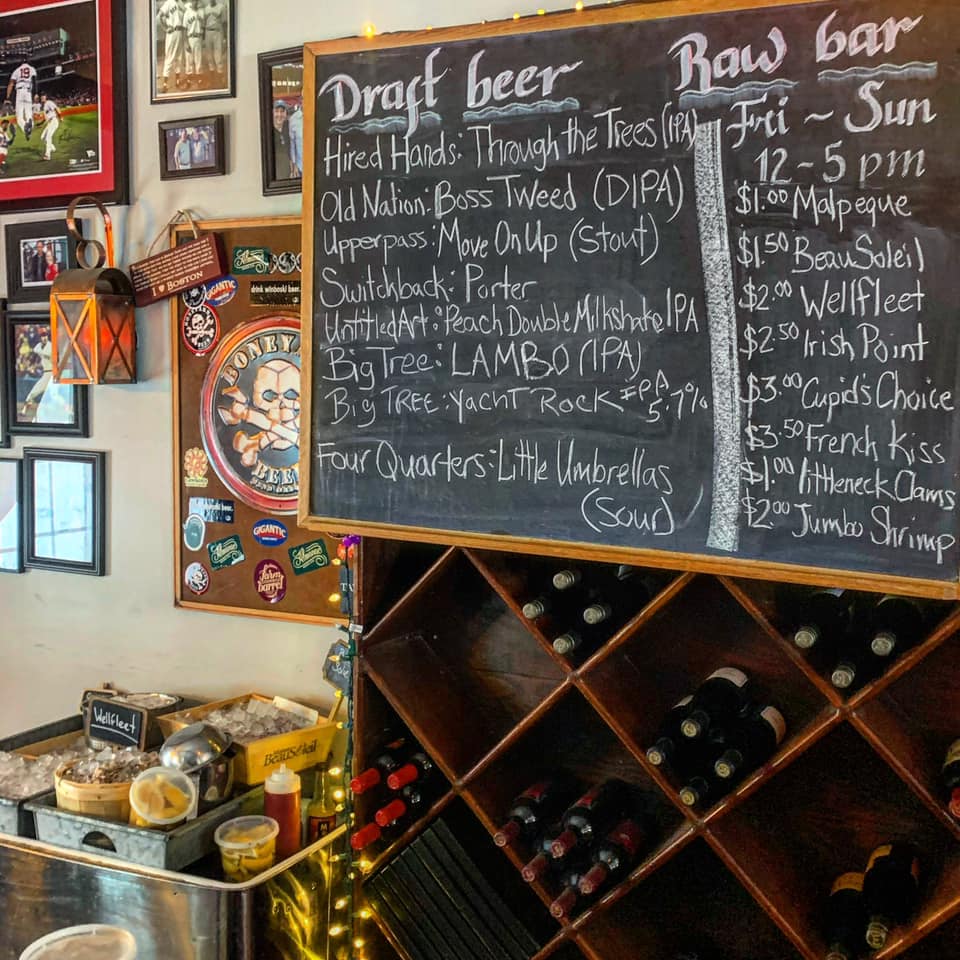 Draft beer
Hired Hands: Through the Trees (IPA)
Old Nation: Boss Tweed (DIPA)
Upperpass: Move On Up (Stout)
Switchback: Porter
Untitled Art: Peach Double Milkshake IPA
Big Tree: LAMBO (IPA)
Big TREE: Yacht Rock IPA 5.7%
Four Quarters: Little Umbrellas
(Sour)
Raw bar
Fri ~ Sun
12-5 pm
$1.00 Malpeque
$1.50 BeauSoleil
$2.00 Wellfleet
$2.50 Irish Point
$3.00 Cupid's Choice
$3.50 French Kiss
$1.00 littleneck Clams
$2.00 Jumbo Shrimp
19
I ♥ BOSTON
GIGANTIC
drink winooski beer.
BONEY
BEER
GIGANTIC
farm
barrel
Wellfleet
BeauSoleil